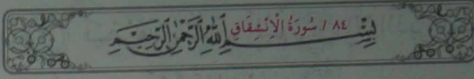 ٨٤ / سُورَةُ الْاِنْشِقَاقِ
بِسْمِ اللّٰهِ الرَّحْمٰنِ الرَّحِيْمِ